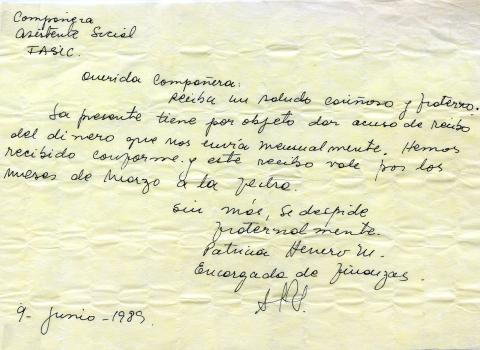 Compañera
Asistente Social
FASIC.
Querida Compañera:
Reciba un saludo cariñoso y fraterno.
La presente tiene por objeto dar acuso de recibo
del dinero que nos envía mensualmente. Hemos
recibido conforme y este recibo vale por los
meses de Marzo a la fecha.
Sin más, se despide
fraternalmente.
Patricia Herrera M.
Encargada de finanzas.
9- Junio - 1989.